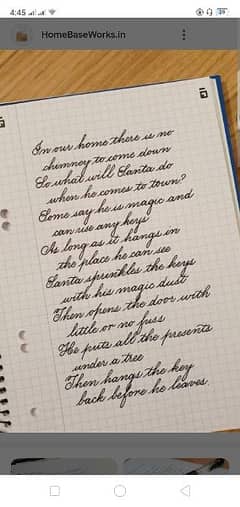 4:45
HomeBaseWorks.in
In our home there is no
chimney to come down
So what will Santa do
when he comes to town?
Some say he is magic and
can use any keys
As long as it hangs in
the place he can see
Santa sprinkles the keys
with his magic dust
Then opens the door with
little or no fuss
He puts all the presents
under a tree
Then hangs the key
back before he leaves.